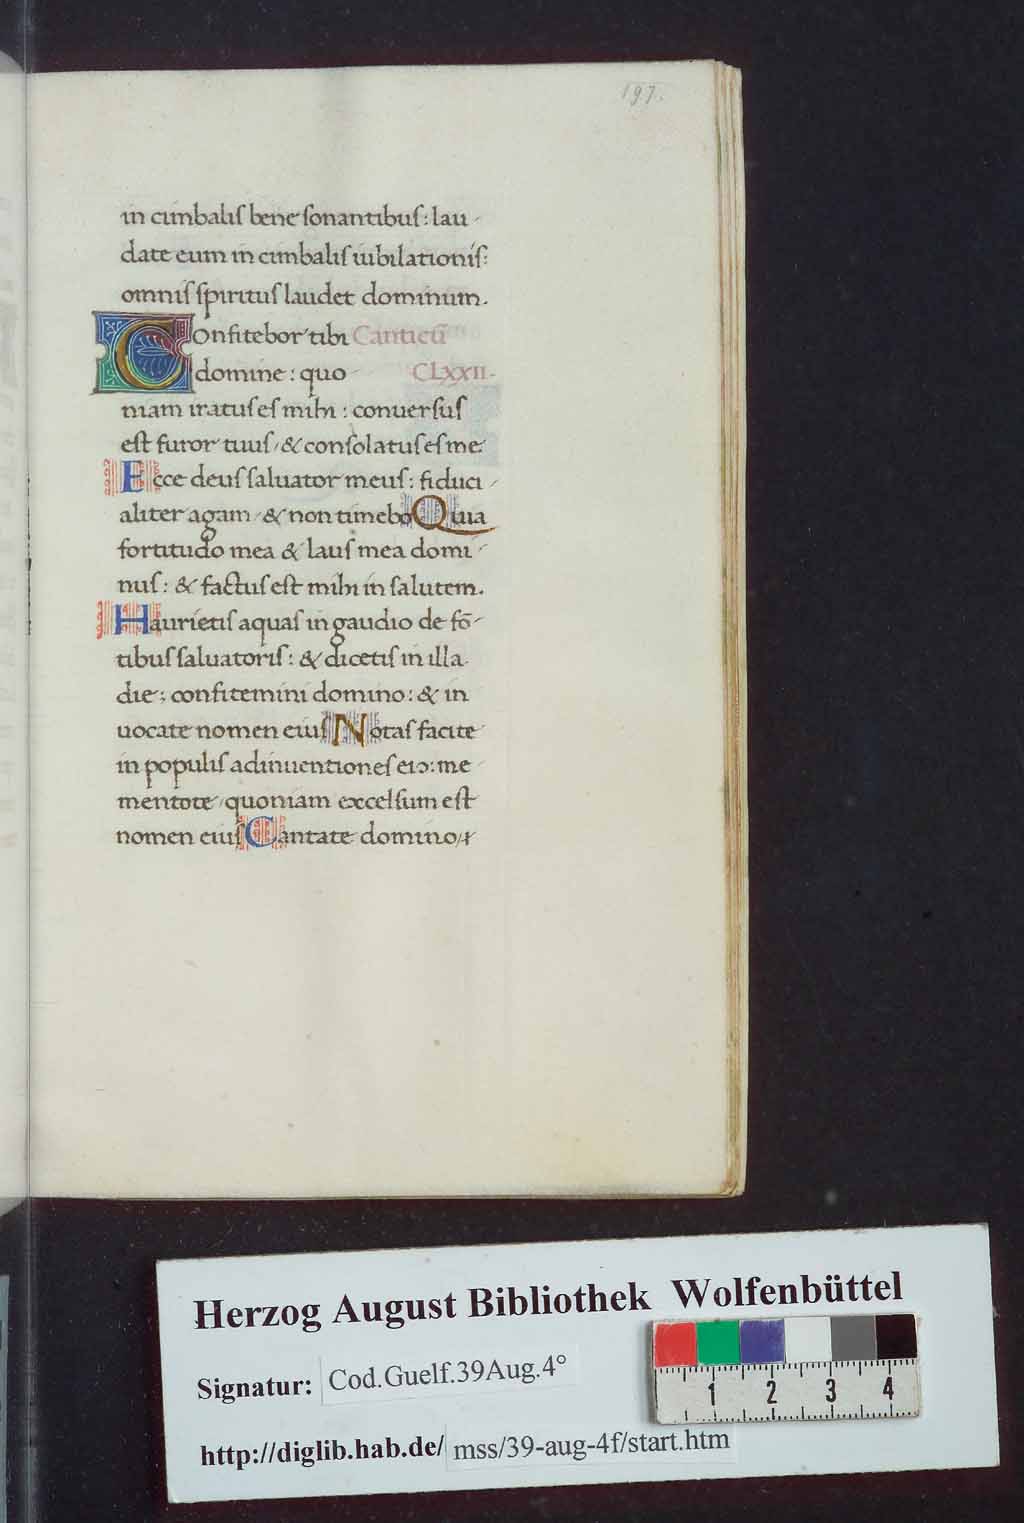 197.
in cimbalis bene sonantibus: lau-
date eum in cimbalis iubilationis:
omnis spiritus laudet dominum.
Confitebor tibi Canticũ
domine: quo CLXXII.
niam iratus es mihi: conuersus
est furor tuus, & consolatus es me.
Ecce deus saluator meus: fiduci-
aliter agam, & non timebo Quia
fortitudo mea & laus mea domi-
nus: & factus est mihi in salutem.
Haurietis aquas in gaudio de fō-
tibus saluatoris: & dicetis in illa
die; confitemini domino: & in
uocate nomen eius Notas facite
in populis adinuentiones eiꝰ: me
mentote, quoniam excelsum est
nomen eius Cantate domino,
Herzog August Bibliothek Wolfenbüttel
Signatur: Cod.Guelf.39Aug.4°
1 2 3 4
http://diglib.hab.de/ mss/39-aug-4f/start.htm